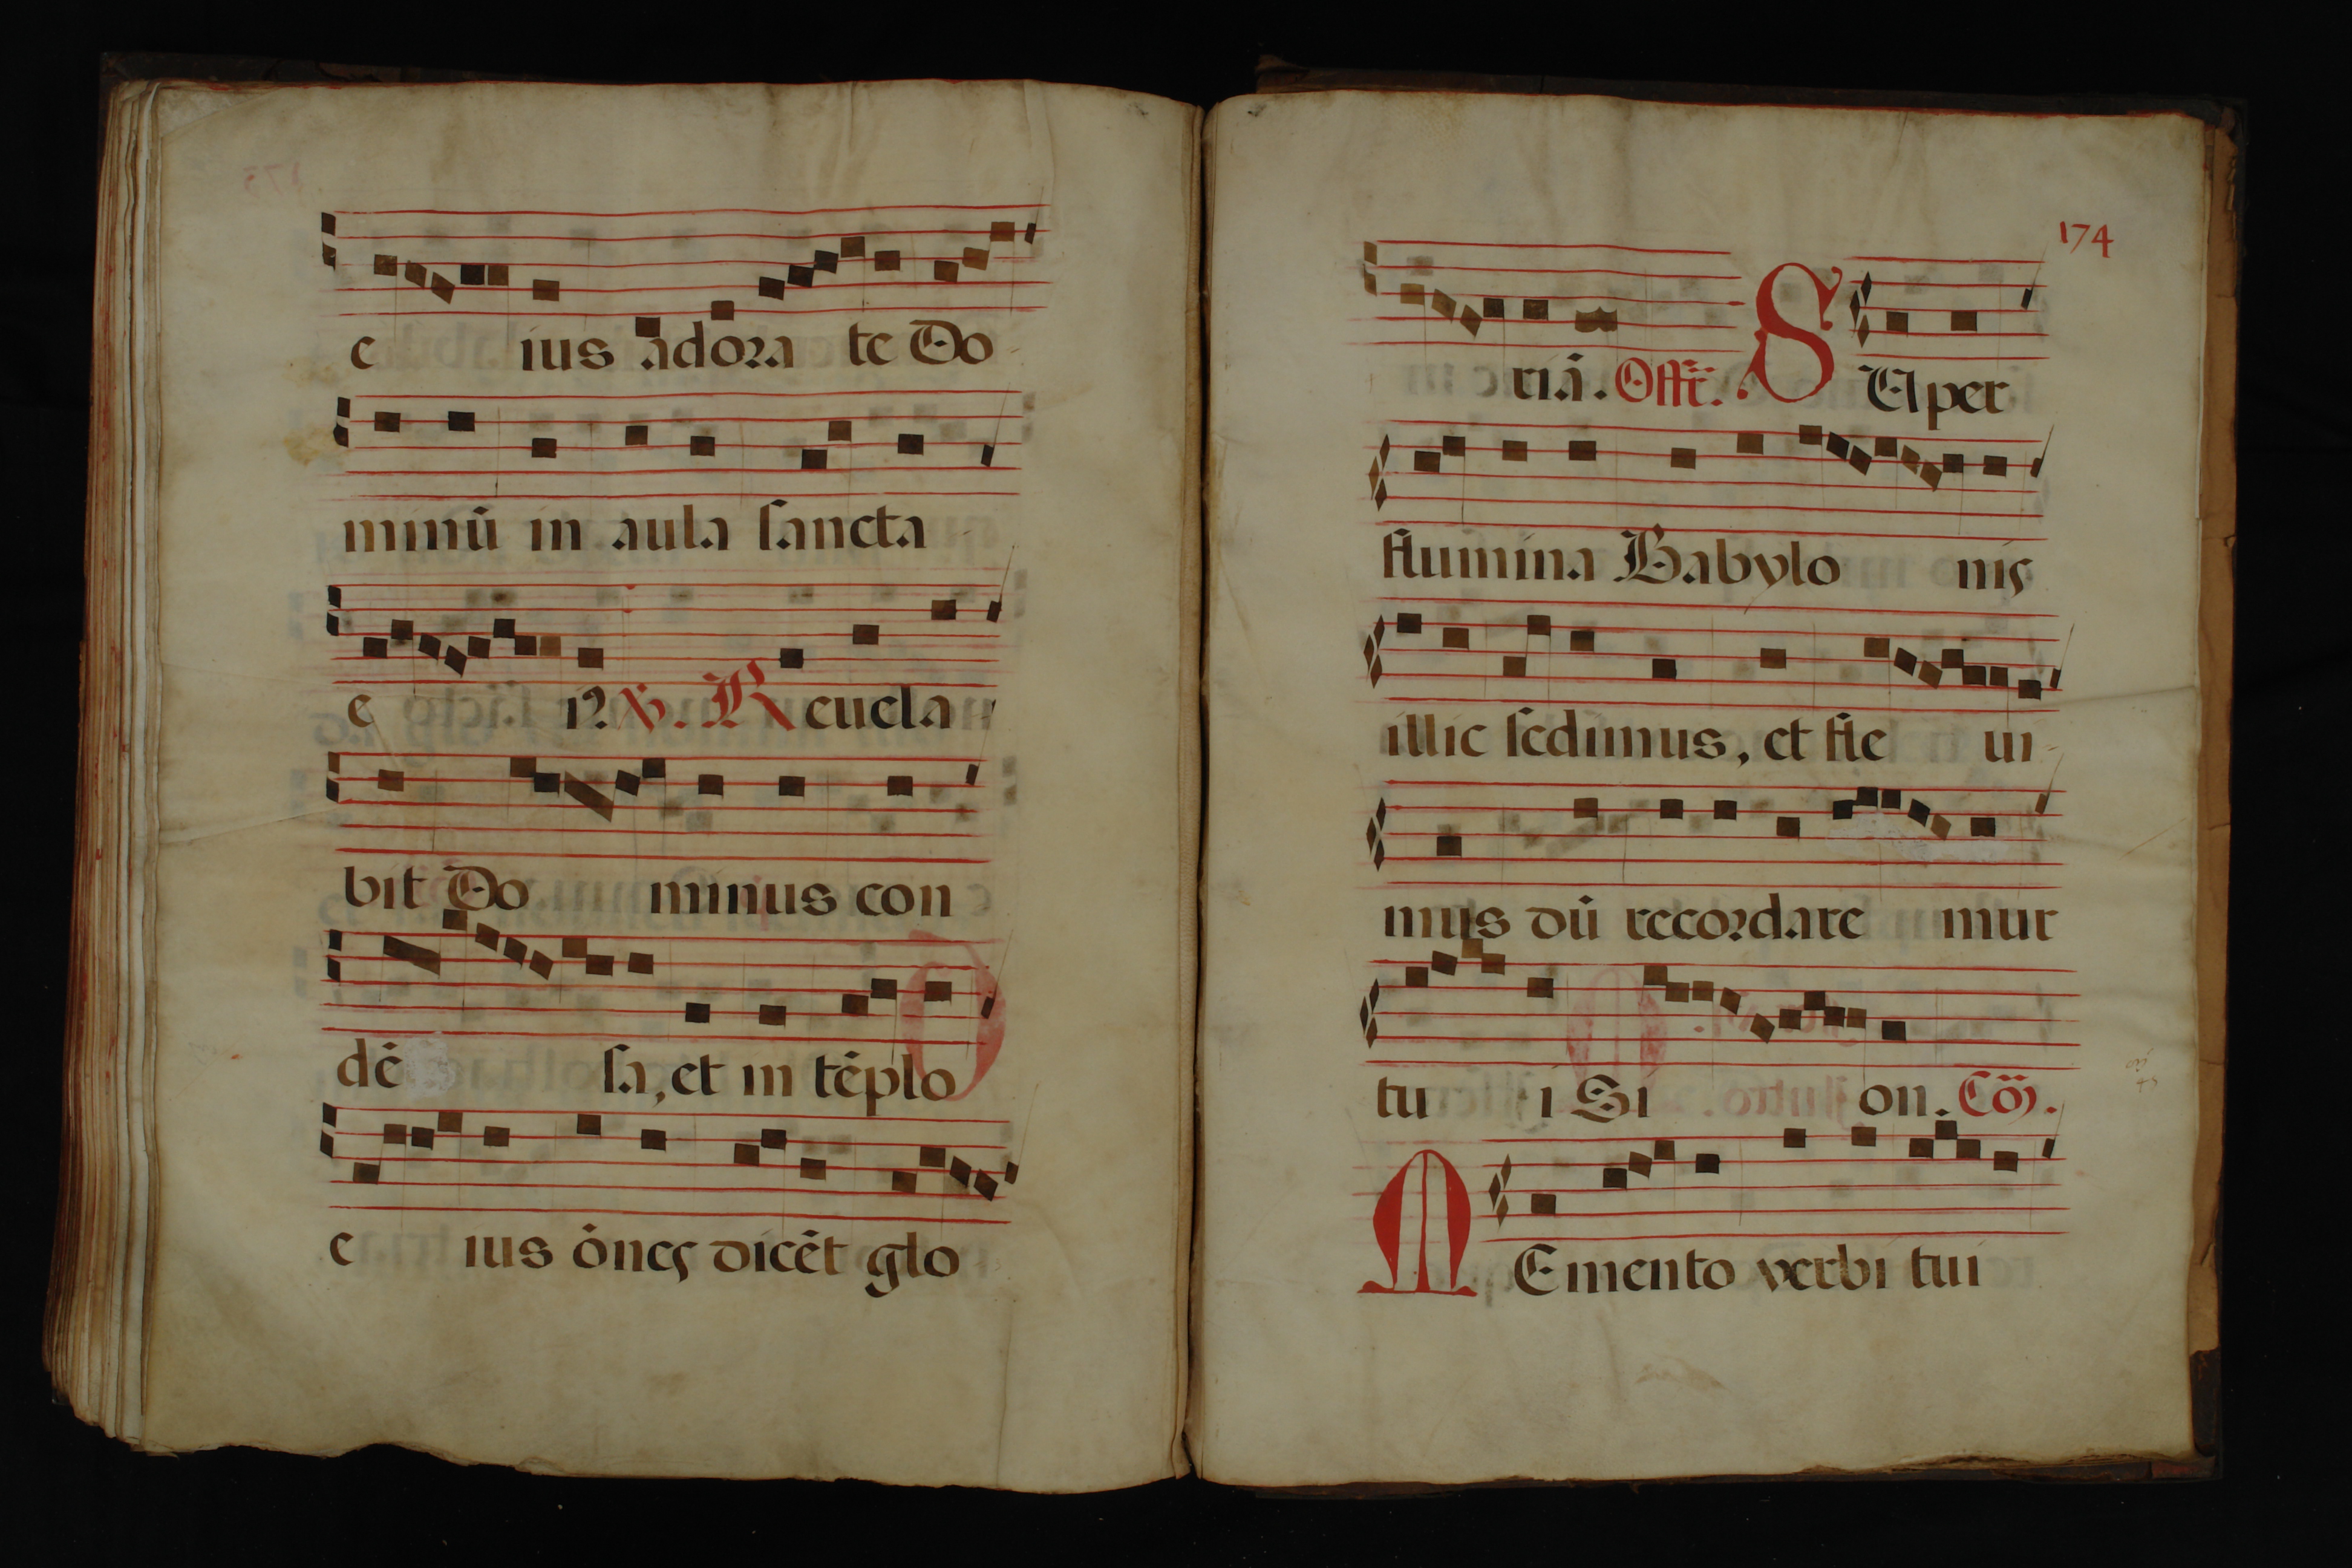 e ius adora te Do
minū in aula sancta
e i⁹. ℣. Reuela
bit Do minus con
dē sa, et in tēplo
e ius ōnes dicēt glo
174
riā. Offr̄. SVper
flumina Babylo nis
illic sedimus, et fle ui
mus dū recordare mur
tu i Si on. Cō.
MEmento verbi tui